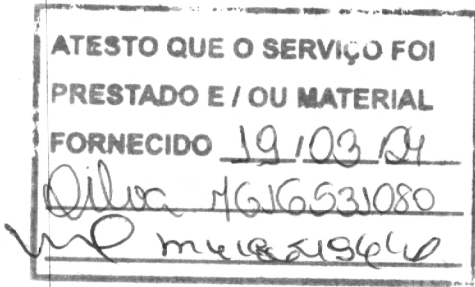 ATESTO QUE O SERVIÇO FOI
PRESTADO E / OU MATERIAL
FORNECIDO 19/03/24
Dilva 7616531080